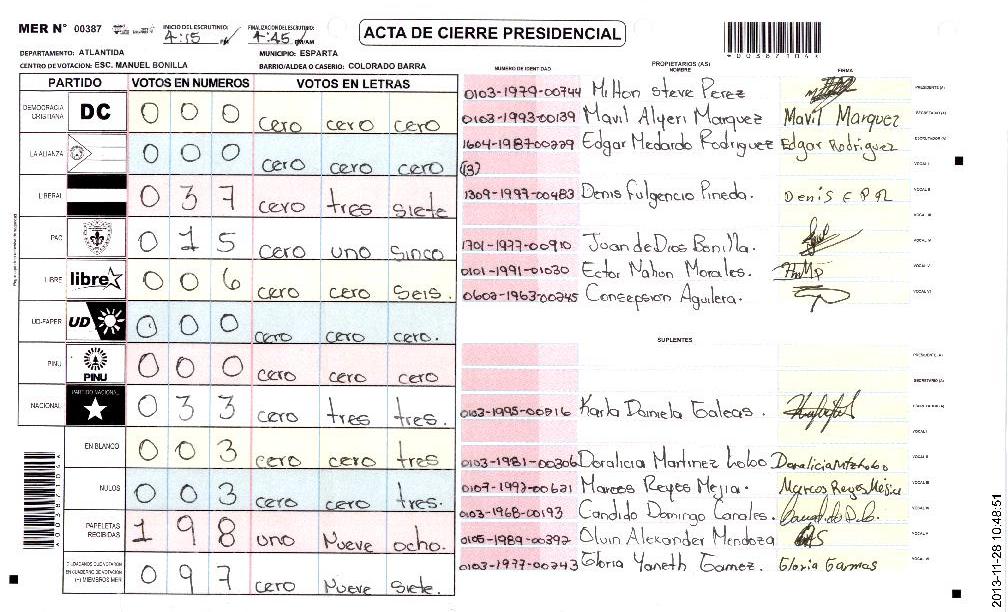 MER N° 00387 INICIO DEL ESCRUTINIO: 4:15 FINALIZACION ESCRUTINIO: 4:45 PM/AM
ACTA DE CIERRE PRESIDENCIAL
DEPARTAMENTO: ATLANTIDA MUNICIPIO: ESPARTA
CENTRO DE VOTACION: ESC. MANUEL BONILLA BARRIO/ALDEA O CASERIO: COLORADO BARRA
PARTIDO VOTOS EN NUMEROS VOTOS EN LETRAS
DEMOCRACIA CRISTIANA DC 0 0 0 cero cero cero
LA ALIANZA 0 0 0 cero cero cero
LIBERAL 0 3 7 cero tres siete
PAC 0 1 5 cero uno sinco
LIBRE libre 0 0 6 cero cero seis.
UD-FAPER UD 0 0 0 cero cero cero.
PINU PINU 0 0 0 cero cero cero
NACIONAL PARTIDO NACIONAL 0 3 3 cero tres tres.
EN BLANCO 0 0 3 cero cero tres
NULOS 0 0 3 cero cero tres.
PAPELETAS RECIBIDAS 1 9 8 uno Nueve ocho.
CIUDADANOS QUE VOTARON EN CUADERNO DE VOTACION (+) MIEMBROS MER 0 9 7 cero Nueve Siete.
NUMERO DE IDENTIDAD PROPIETARIOS (AS) NOMBRE FIRMA
0103-1979-00744 Milton Steve Perez PRESIDENTE (A)
0103-1993-00139 Mavil Alyeri Marquez Mavil Marquez SECRETARIO (A)
1604-1987-00229 Edgar Medardo Rodriguez Edgar Rodriguez ESCRUTADOR (A)
(13) VOCAL I
1309-1997-00483 Denis Fulgencio Pineda. Denis VOCAL II
VOCAL III
1701-1977-00910 Juan de Dios Bonilla. VOCAL IV
0101-1991-01030 Ector Nahon Morales. VOCAL V
0603-1963-00245 Consepsion Aguilera. VOCAL VI
SUPLENTES
PRESIDENTE (A)
SECRETARIO (A)
0103-1995-00916 Karla Daniela Galeas. ESCRUTADOR (A)
VOCAL I
0103-1981-00306 Doralicia Martinez Lobo Doralicia Mtz Lobo VOCAL II
0107-1993-00621 Marcos Reyes Mejia. Marcos Reyes Mejia VOCAL III
0103-1968-00193 Candido Domingo Canales. VOCAL IV
0105-1989-00392 Olvin Alexander Mendoza VOCAL V
0103-1977-00243 Gloria Yaneth Gamez. Gloria Gamas VOCAL VI
2013-11-28 10:48:51